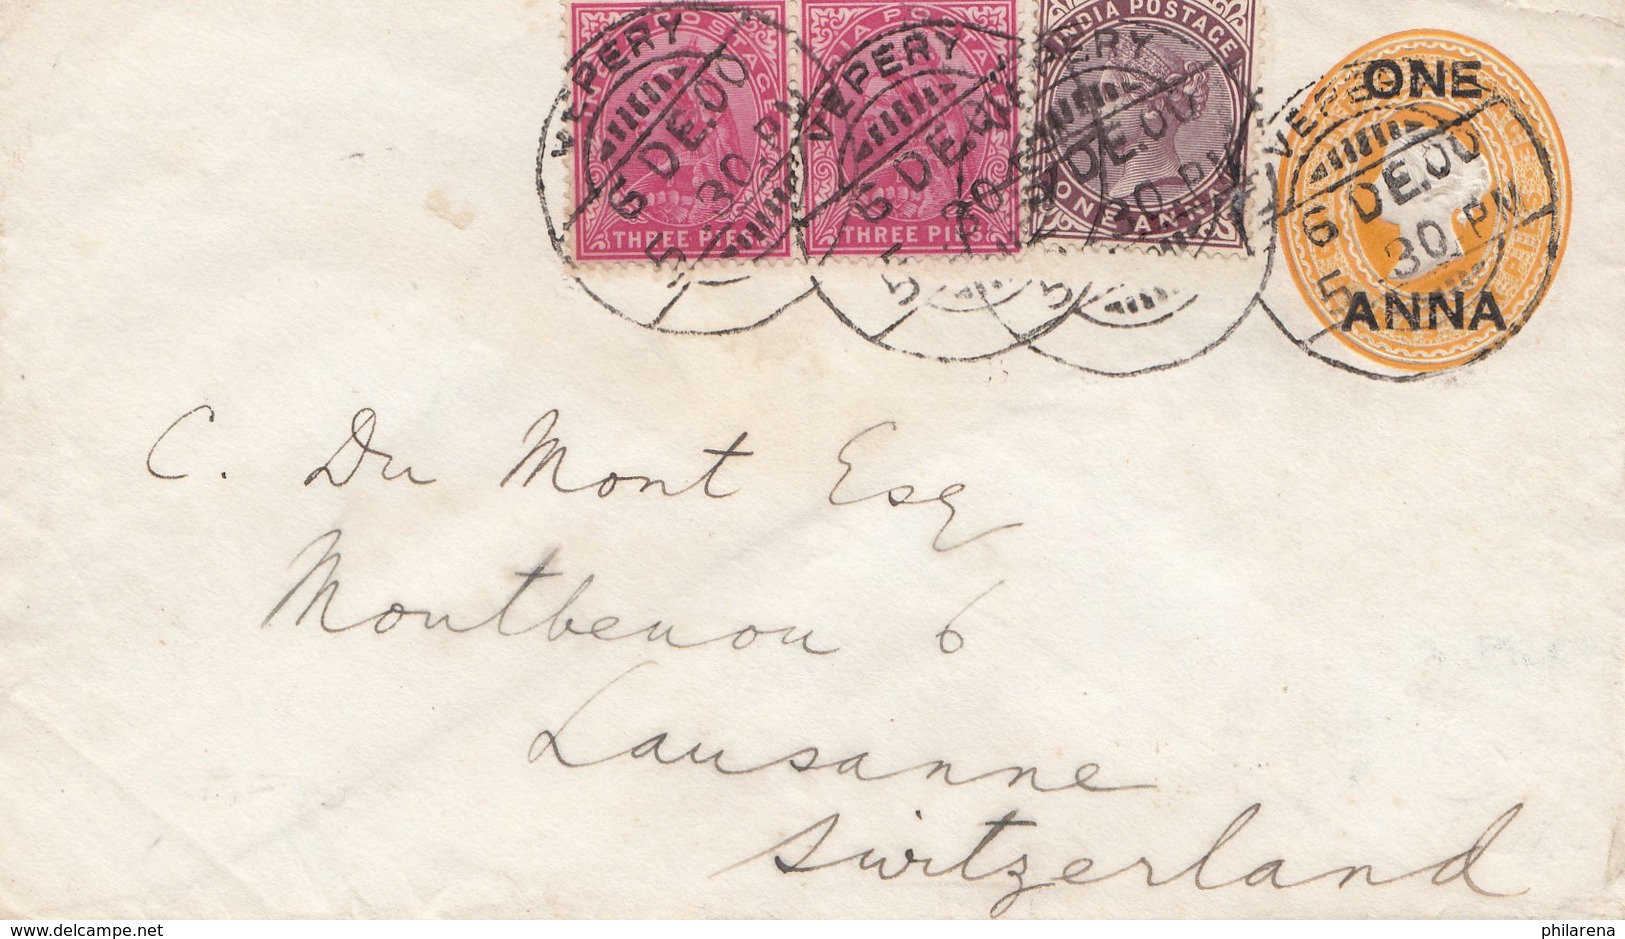 INDIA POSTAGE
THREE PIES
THREE PIES
ONE ANNA
VEPERY
6 DE.00
5.30.PM
VEPERY
6 DE.00
5.30
VEPERY
6 DE.00
5.30.PM
VEPERY
6 DE.00
5.30.PM
ONE
ANNA
C. Du Mont Esq
Montbenon 6
Lausanne
Switzerland
www.delcampe.net
philarena